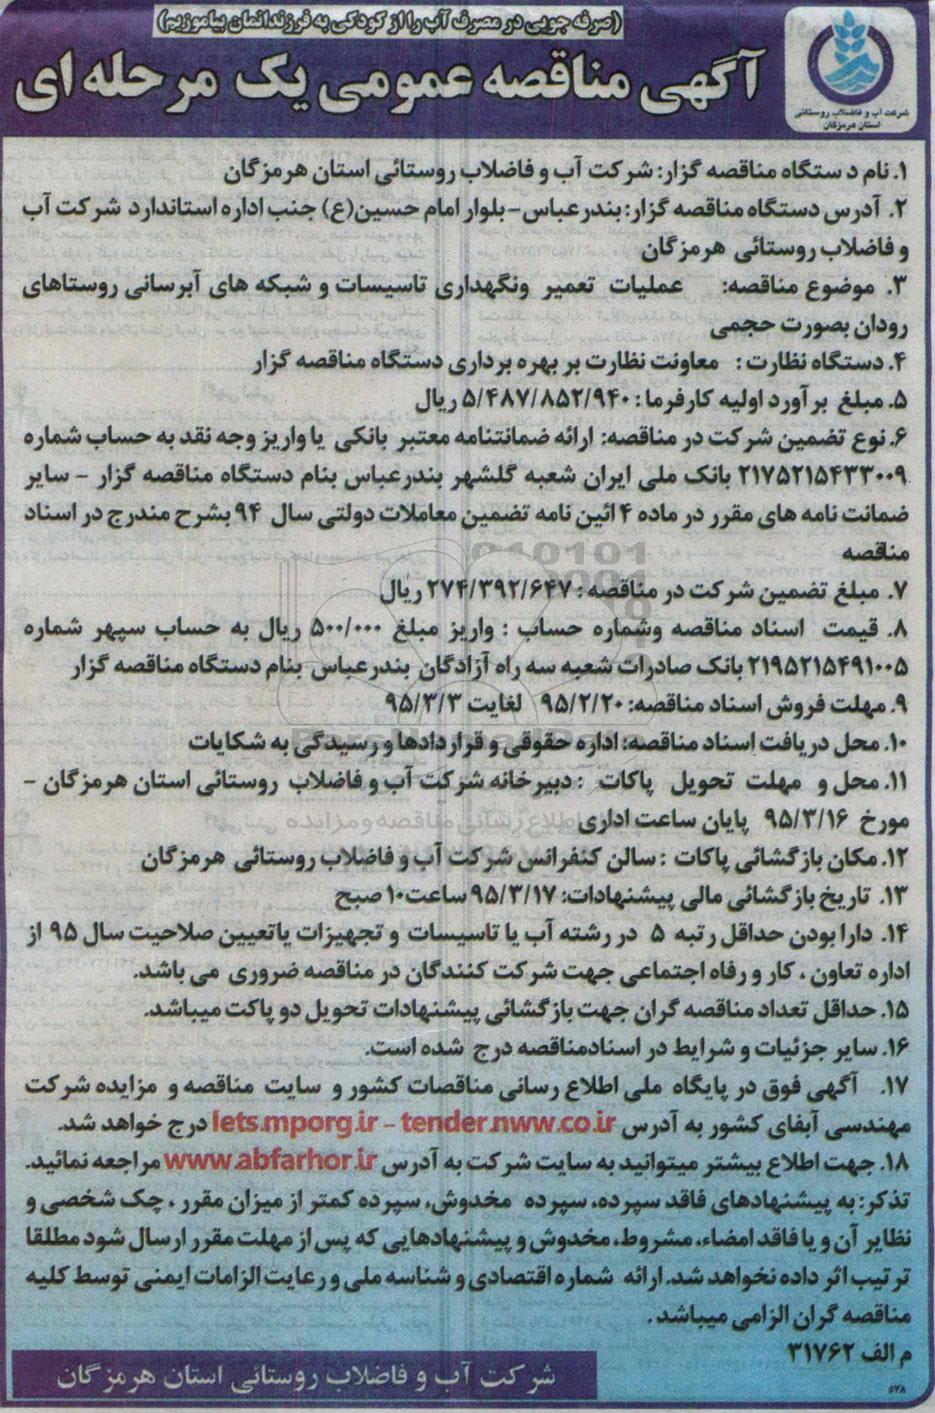 (صرفه جویی در مصرف آب را از کودکی به فرزندانمان بیاموزیم)
آگهی مناقصه عمومی یک مرحله ای
شرکت آب و فاضلاب روستائی
استان هرمزگان
۱. نام دستگاه مناقصه گزار: شرکت آب و فاضلاب روستائی استان هرمزگان
۲. آدرس دستگاه مناقصه گزار: بندرعباس- بلوار امام حسین(ع) جنب اداره استاندارد شرکت آب
و فاضلاب روستائی هرمزگان
۳. موضوع مناقصه: عملیات تعمیر ونگهداری تاسیسات و شبکه های آبرسانی روستاهای
رودان بصورت حجمی
۴. دستگاه نظارت : معاونت نظارت بر بهره برداری دستگاه مناقصه گزار
۵. مبلغ برآورد اولیه کارفرما : ۵/۴۸۷/۸۵۲/۹۴۰ ریال
۶. نوع تضمین شرکت در مناقصه: ارائه ضمانتنامه معتبر بانکی یا واریز وجه نقد به حساب شماره
۲۱۷۵۲۱۵۴۳۳۰۰۹ بانک ملی ایران شعبه گلشهر بندرعباس بنام دستگاه مناقصه گزار - سایر
ضمانت نامه های مقرر در ماده ۴ ائین نامه تضمین معاملات دولتی سال ۹۴ بشرح مندرج در اسناد
مناقصه
۷. مبلغ تضمین شرکت در مناقصه : ۲۷۴/۳۹۲/۶۴۷ ریال
۸. قیمت اسناد مناقصه وشماره حساب : واریز مبلغ ۵۰۰/۰۰۰ ریال به حساب سپهر شماره
۲۱۹۵۲۱۵۴۹۱۰۰۵ بانک صادرات شعبه سه راه آزادگان بندرعباس بنام دستگاه مناقصه گزار
۹. مهلت فروش اسناد مناقصه: ۹۵/۲/۲۰ لغایت ۹۵/۳/۳
۱۰. محل دریافت اسناد مناقصه: اداره حقوقی و قراردادها و رسیدگی به شکایات
۱۱. محل و مهلت تحویل پاکات : دبیرخانه شرکت آب و فاضلاب روستائی استان هرمزگان -
مورخ ۹۵/۳/۱۶ پایان ساعت اداری
۱۲. مکان بازگشائی پاکات : سالن کنفرانس شرکت آب و فاضلاب روستائی هرمزگان
۱۳. تاریخ بازگشائی مالی پیشنهادات: ۹۵/۳/۱۷ ساعت ۱۰ صبح
۱۴. دارا بودن حداقل رتبه ۵ در رشته آب یا تاسیسات و تجهیزات یا تعیین صلاحیت سال ۹۵ از
اداره تعاون ، کار و رفاه اجتماعی جهت شرکت کنندگان در مناقصه ضروری می باشد.
۱۵. حداقل تعداد مناقصه گران جهت بازگشائی پیشنهادات تحویل دو پاکت میباشد.
۱۶. سایر جزئیات و شرایط در اسنادمناقصه درج شده است.
۱۷. آگهی فوق در پایگاه ملی اطلاع رسانی مناقصات کشور و سایت مناقصه و مزایده شرکت
مهندسی آبفای کشور به آدرس Iets.mporg.ir - tender.nww.co.ir درج خواهد شد.
۱۸. جهت اطلاع بیشتر میتوانید به سایت شرکت به آدرس www.abfarhor.ir مراجعه نمائید.
تذکر: به پیشنهادهای فاقد سپرده، سپرده مخدوش، سپرده کمتر از میزان مقرر ، چک شخصی و
نظایر آن و یا فاقد امضاء، مشروط، مخدوش و پیشنهادهایی که پس از مهلت مقرر ارسال شود مطلقا
ترتیب اثر داده نخواهد شد. ارائه شماره اقتصادی و شناسه ملی و رعایت الزامات ایمنی توسط کلیه
مناقصه گران الزامی میباشد .
م الف ۳۱۷۶۲
شرکت آب و فاضلاب روستائی استان هرمزگان
۵۷۸